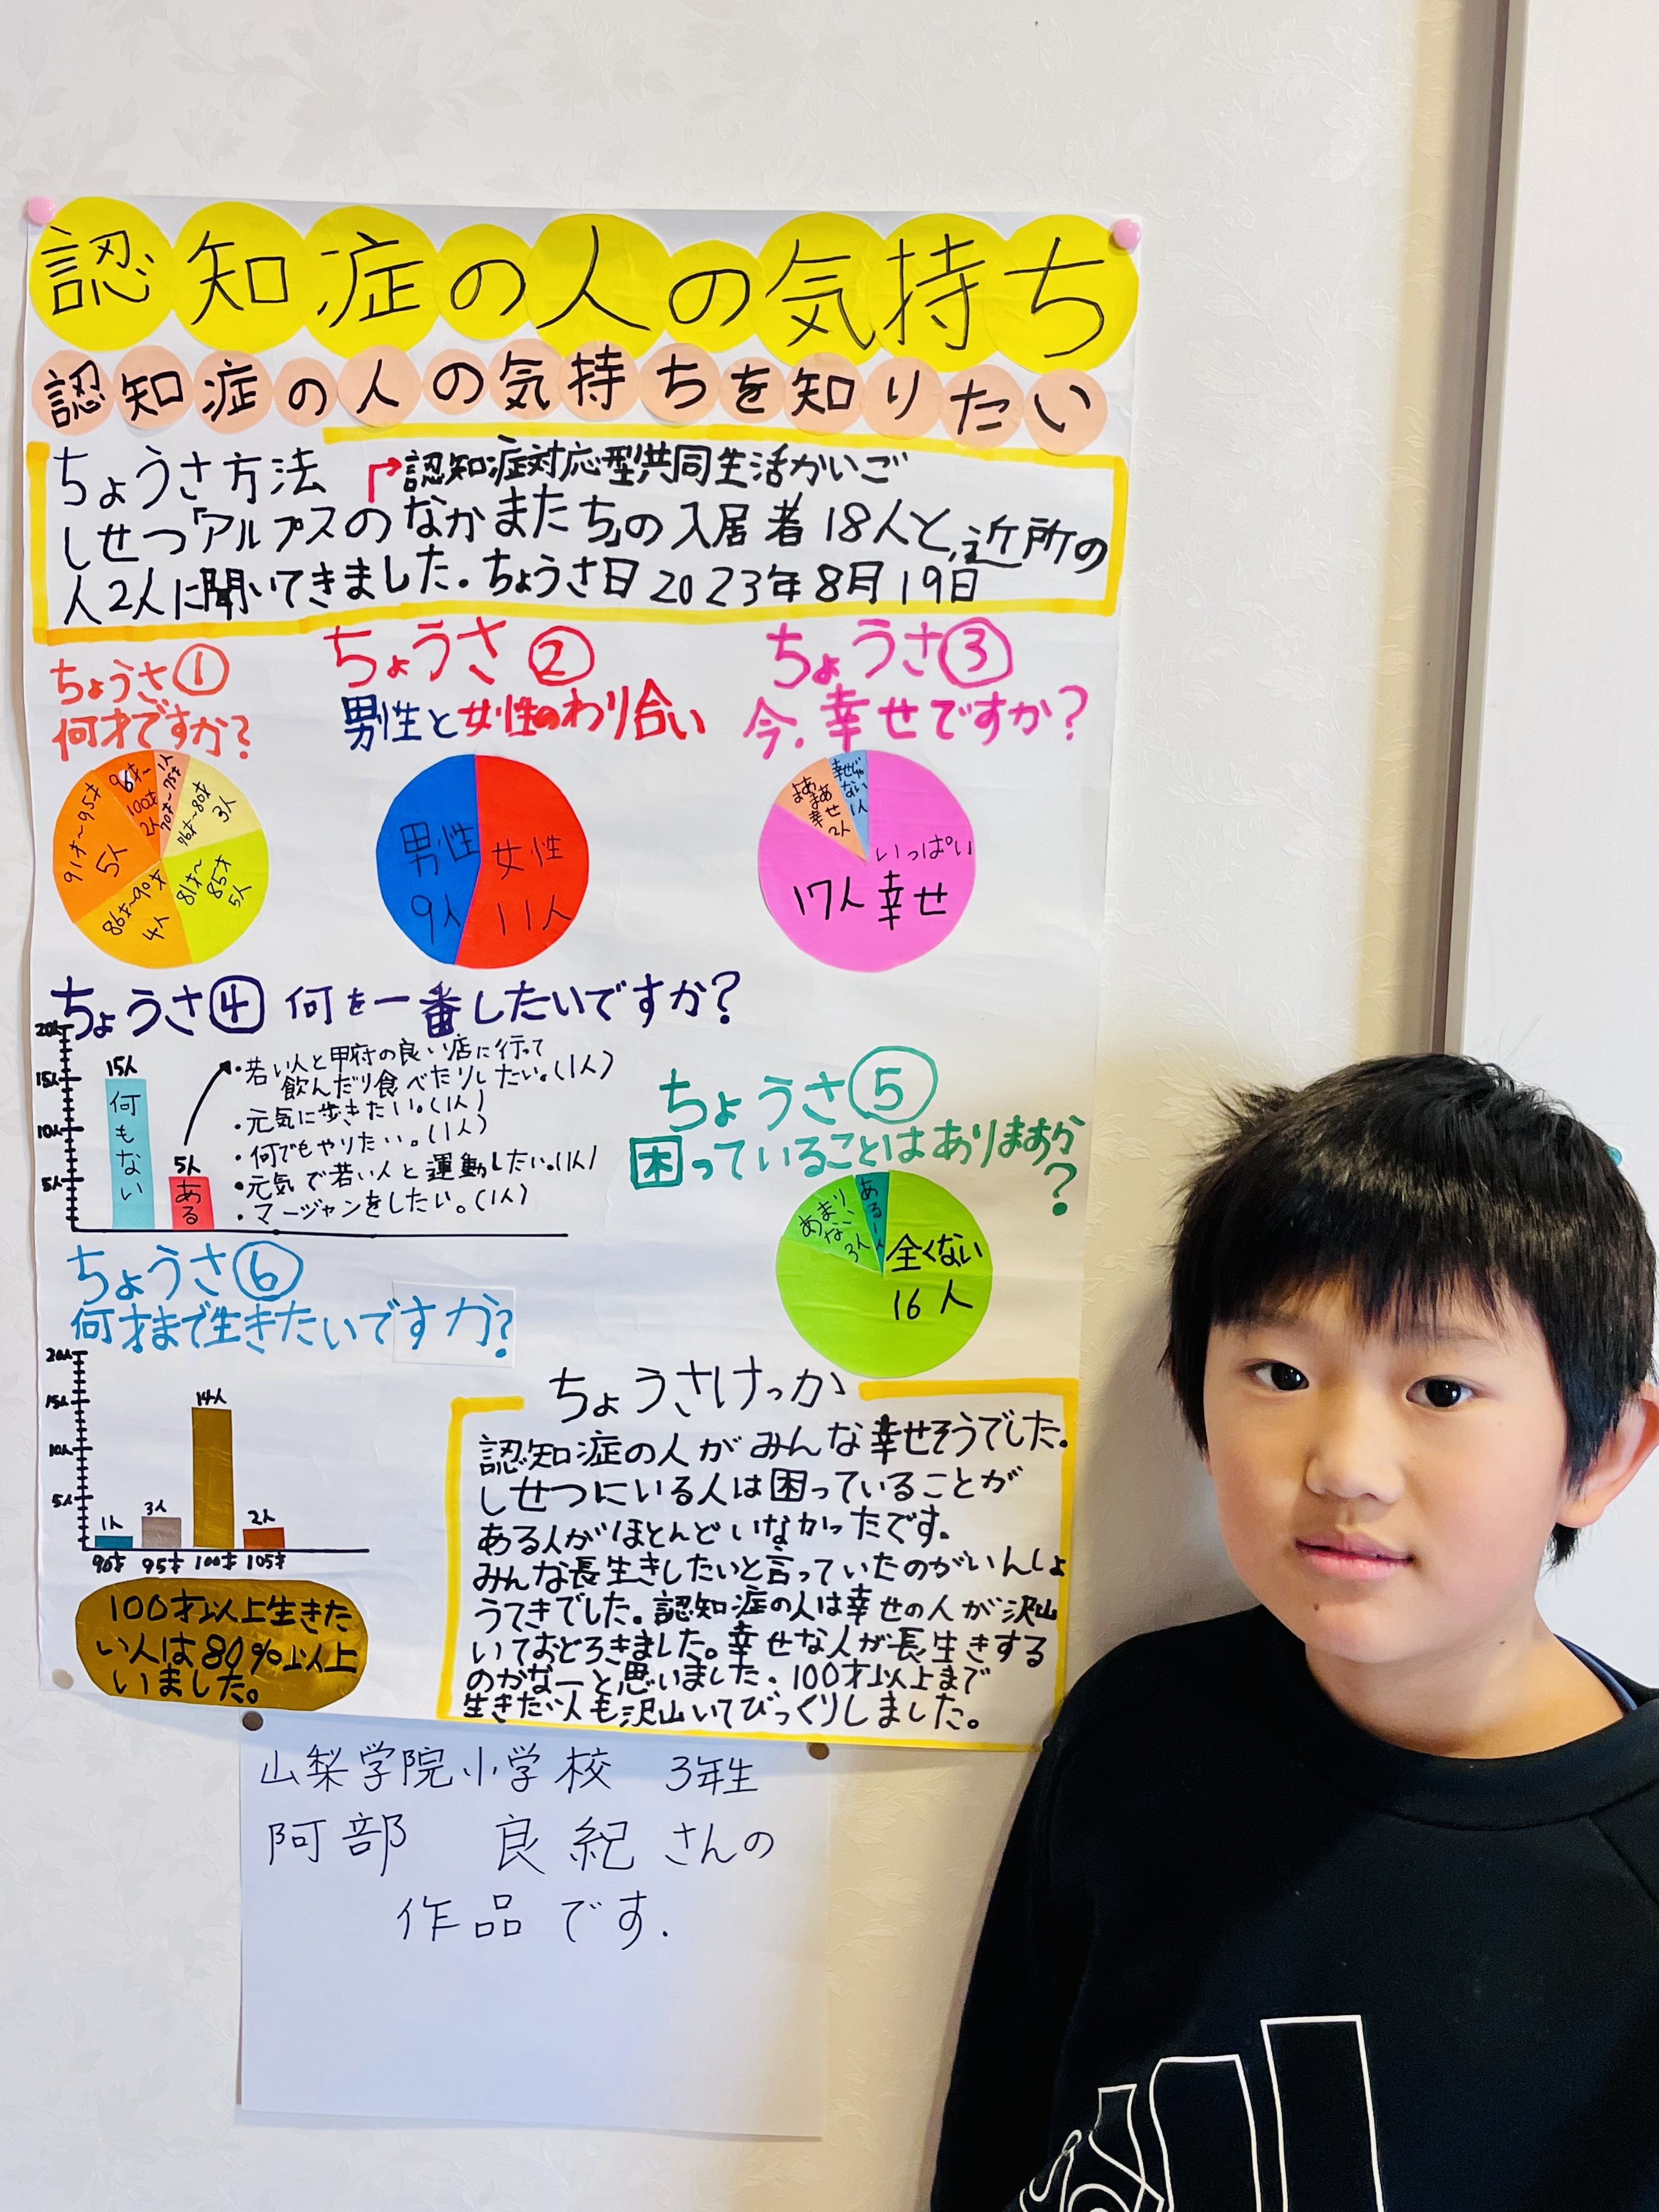 認知症の人の気持ち
認知症の人の気持ちを知りたい
ちょうさ方法
認知症対応型共同生活かいご
しせつ「アルプスのなかまたち」の入居者18人と、近所の
人2人に聞いてきました。ちょうさ日2023年8月19日
ちょうさ①
何才ですか?
1人
70才~75才
76才~80才
3人
81才~
85才
5人
86才~90才
4人
91才~95才
5人
96才~
100才
2人
ちょうさ②
男性と女性のわり合い
男性
9人
女性
11人
ちょうさ③
今、幸せですか?
まあ
まあ
幸せ
2人
幸せじゃ
ない
1人
いっぱい
17人 幸せ
ちょうさ④ 何を一番したいですか?
20人
15人
10人
5人
15人
何もない
5人
ある
・若い人と甲府の良い店に行って
飲んだり食べたりしたい。(1人)
・元気に歩きたい。(1人)
・何でもやりたい。(1人)
・元気で若い人と運動したい。(1人)
・マージャンをしたい。(1人)
ちょうさ⑤
困っていることはありますか
?
あまり
ない
3人
ある1人
全くない
16人
ちょうさ⑥
何才まで生きたいですか?
20人
15人
10人
5人
1人
3人
14人
2人
90才 95才 100才 105才
100才以上生きた
い人は80%以上
いました。
ちょうさけっか
認知症の人がみんな幸せそうでした。
しせつにいる人は困っていることが
ある人がほとんどいなかったです。
みんな長生きしたいと言っていたのがいんしょ
うてきでした。認知症の人は幸せの人が沢山
いておどろきました。幸せな人が長生きする
のかなーと思いました。100才以上まで
生きたい人も沢山いてびっくりしました。
山梨学院小学校 3年生
阿部 良紀さんの
作品です.